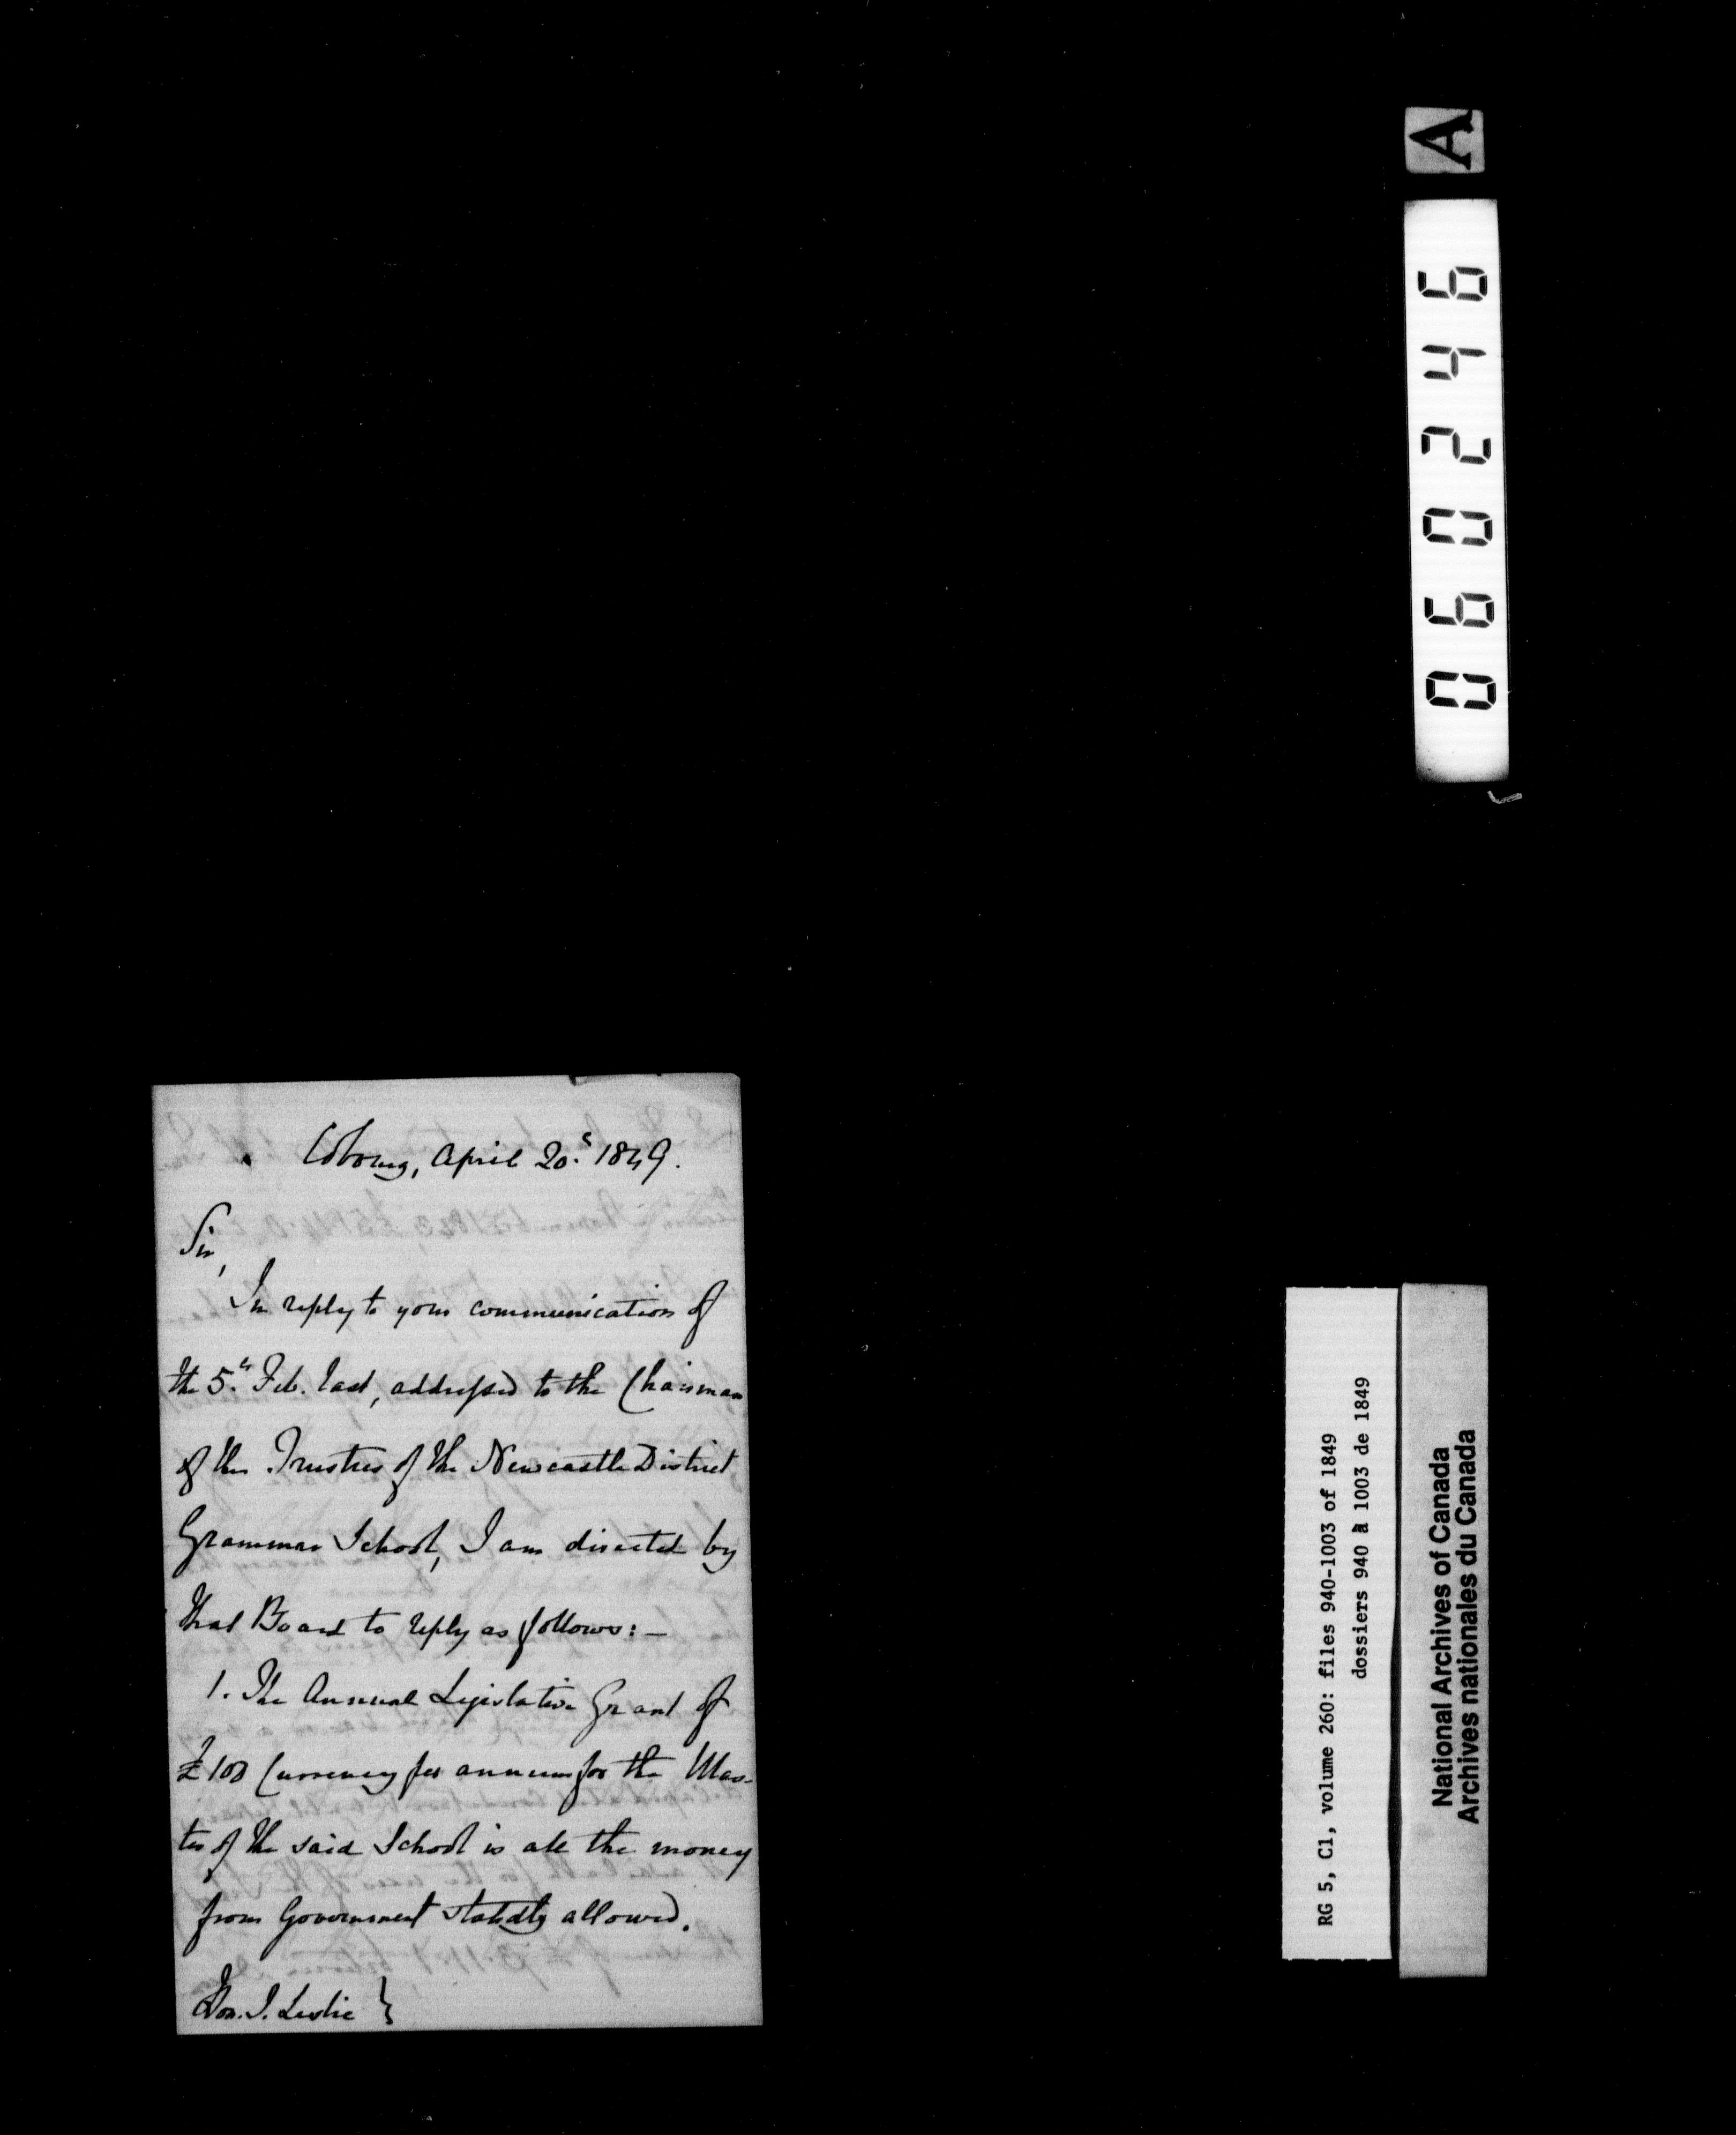 Cobourg, April 20.s 1849.
Sir,
In reply to your communication of
the 5.th Feb. last, addressed to the Chairman
of the Trustees of the Newcastle District
Grammar School, I am directed by
that Board to reply as follows:—
1. The Annual Legislative Grant of
£100 Currency per annum for the Mas-
ter of the said School is all the money
from Government statedly allowed.
Hon. J. Leslie }
A
060246
RG 5, C1, volume 260: files 940-1003 of 1849
dossiers 940 à 1003 de 1849
National Archives of Canada
Archives nationales du Canada